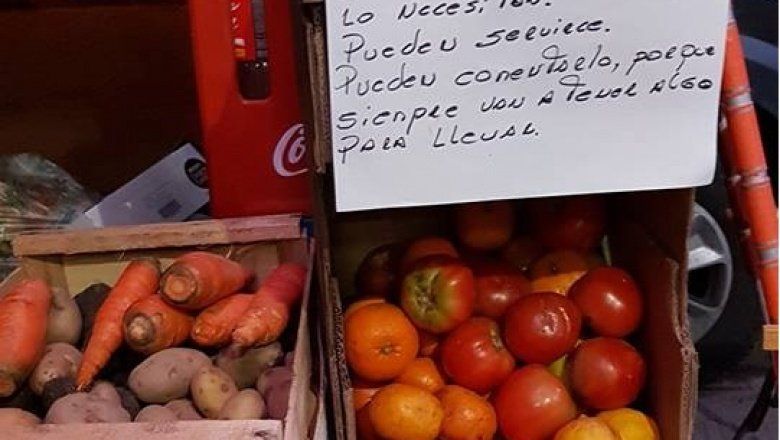 Lo necesiten.
Pueden servirce.
Pueden comentarlo, porque
siempre van a tener algo
para llevar.
Co